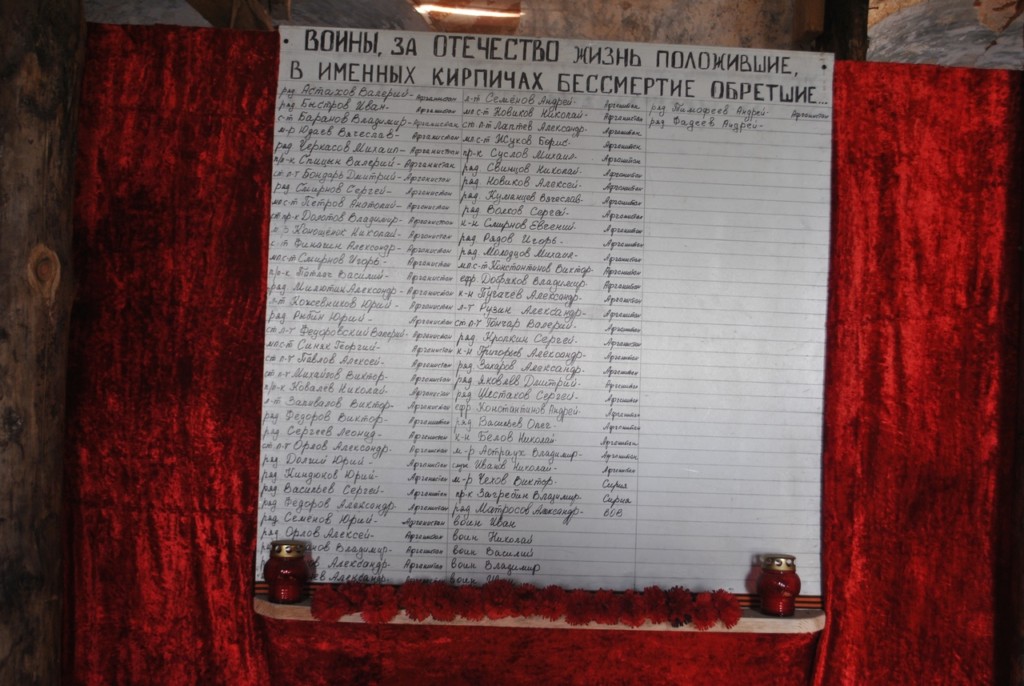 ВОИНЫ, ЗА ОТЕЧЕСТВО ЖИЗНЬ ПОЛОЖИВШИЕ,
В ИМЕННЫХ КИРПИЧАХ БЕССМЕРТИЕ ОБРЕТШИЕ...
ряд Астахов Валерий-
ряд Быстров Иван- Афганистан
с-т Баранов Владимир- Афганистан
м-р Юдаев Вячеслав- Афганистан
ряд Черкасов Михаил- Афганистан
пр-к Спицын Валерий- Афганистан
ст.л-т Бондарь Дмитрий- Афганистан
ряд Смирнов Сергей- Афганистан
мл.с-т Петров Анатолий- Афганистан
ст.пр-к Долотов Владимир- Афганистан
Николай- Афганистан
с-т Финагин Александр- Афганистан
мл.с-т Смирнов Игорь- Афганистан
пр-к Василий- Афганистан
ряд Милютин Александр- Афганистан
л-т Кожевников Юрий- Афганистан
ряд Рыбин Юрий- Афганистан
ст.л-т Федоровский Валерий- Афганистан
мл.с-т Синяк Георгий- Афганистан
ст.л-т Павлов Алексей- Афганистан
ст.л-т Михайлов Виктор- Афганистан
пр-к Ковалев Николай- Афганистан
л-т Запивалов Виктор- Афганистан
ряд Федоров Виктор- Афганистан
ряд Сергеев Леонид- Афганистан
ст.л-т Орлов Александр- Афганистан
ряд Долгий Юрий- Афганистан
ряд Киндюков Юрий- Афганистан
ряд Васильев Сергей- Афганистан
ряд Федоров Александр- Афганистан
ряд Семенов Юрий- Афганистан
ряд Орлов Алексей- Афганистан
Владимир- Афганистан
Александр- Афганистан
Александр-
л-т Семенов Андрей- Афганистан
мл.с-т Новиков Николай- Афганистан
ст.л-т Лаптев Александр- Афганистан
мл.с-т Жуков Борис- Афганистан
пр-к Суслов Михаил- Афганистан
ряд Свинцов Николай- Афганистан
ряд Новиков Алексей- Афганистан
ряд Куманцев Вячеслав- Афганистан
ряд Волков Сергей- Афганистан
к-н Смирнов Евгений- Афганистан
ряд Рядов Игорь- Афганистан
ряд Молодцов Михаил- Афганистан
мл.с-т Константинов Виктор- Афганистан
ефр Добряков Владимир- Афганистан
к-н Пугачев Александр- Афганистан
л-т Рузин Александр- Афганистан
ст.л-т Гончар Валерий- Афганистан
ряд Кропкин Сергей- Афганистан
к-н Григорьев Александр- Афганистан
ряд Захаров Александр- Афганистан
ряд Яковлев Дмитрий- Афганистан
ряд Шестаков Сергей- Афганистан
ефр Константинов Андрей- Афганистан
ряд Васильев Олег- Афганистан
к-н Белов Николай- Афганистан
м-р Астраук Владимир- Афганистан
Иванов Николай- Афганистан
м-р Чехов Виктор- Сирия
пр-к Загребин Владимир- Сирия
ряд Матросов Александр- ВОВ
воин Иван
воин Николай
воин Василий
воин Владимир
воин
ряд Тимофеев Андрей- Афганистан
ряд Фадеев Андрей-